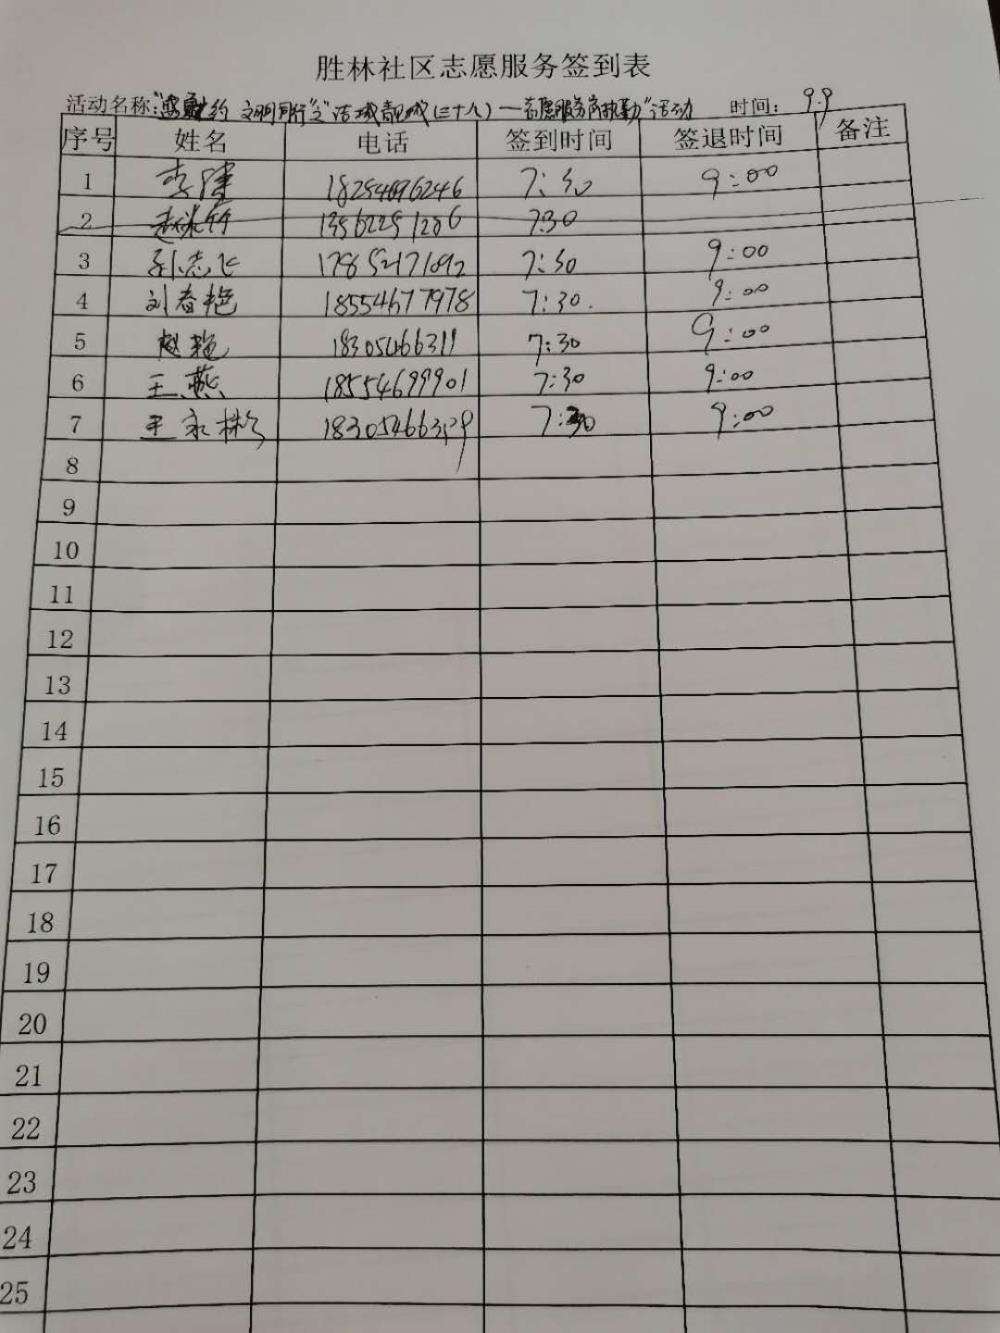 胜林社区志愿服务签到表
活动名称: 文明同行 志愿服务 活动 时间: 9.9
序号 姓名 电话 签到时间 签退时间 备注
1 李建 18254696246 7:30 9:00
2 13562251206 7:30
3 孙志飞 17852171092 7:30 9:00
4 刘春艳 18554677978 7:30. 9:00
5 赵艳 18305466311 7:30 9:00
6 王燕 18554699901 7:30 9:00
7 王永彬 7:30 9:00
8
9
10
11
12
13
14
15
16
17
18
19
20
21
22
23
24
25